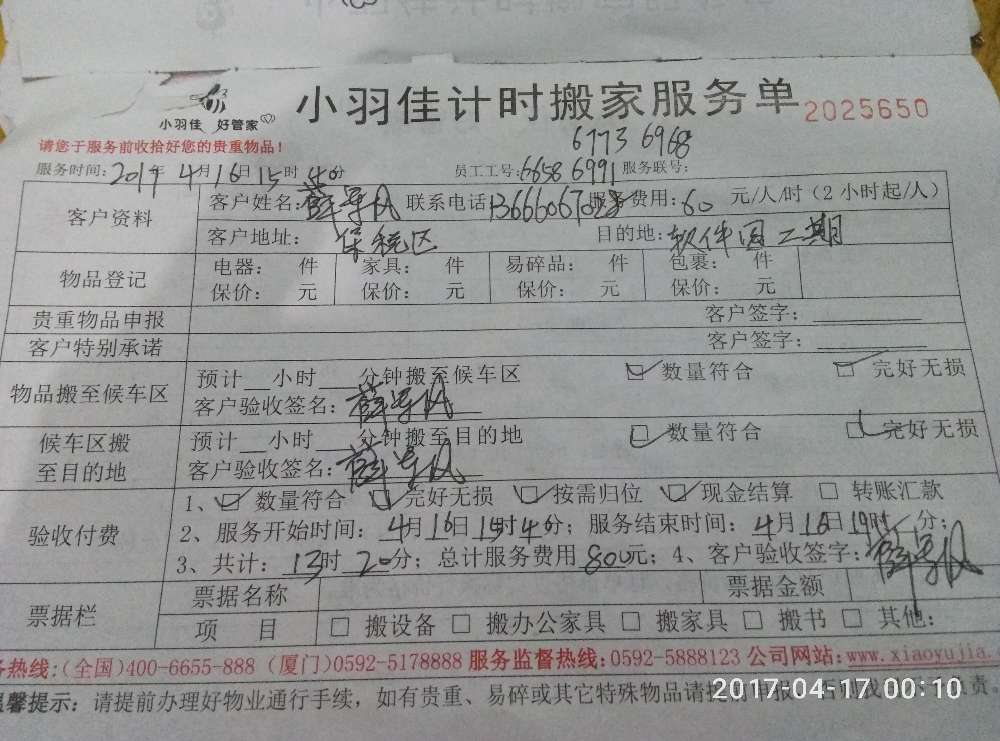 小羽佳 好管家
小羽佳计时搬家服务单 2025650
请您于服务前收拾好您的贵重物品！
6773 6968
服务时间：2017年4月16日15时40分 员工工号：6658 6991 服务联号：
客户资料 客户姓名： 联系电话 服务费用：60 元/人/时（2小时起/人）
客户地址： 保税区 目的地：软件园二期
物品登记 电器： 件 家具： 件 易碎品： 件 包裹： 件
保价： 元 保价： 元 保价： 元 保价： 元
贵重物品申报 客户签字：
客户特别承诺 客户签字：
物品搬至候车区 预计__小时___分钟搬至候车区 数量符合 完好无损
客户验收签名：
候车区搬至目的地 预计__小时___分钟搬至目的地 数量符合 完好无损
客户验收签名：
验收付费 1、数量符合 完好无损 按需归位 现金结算 转账汇款
2、服务开始时间：4月16日15时40分；服务结束时间：4月16日19时 分；
3、共计：13时20分；总计服务费用800元；4、客户验收签字：
票据栏 票据名称 票据金额
项 目 搬设备 搬办公家具 搬家具 搬书 其他：
务热线：（全国）400-6655-888（厦门）0592-5178888 服务监督热线：0592-5888123 公司网站：www.xiaoyujia.
温馨提示：请提前办理好物业通行手续，如有贵重、易碎或其它特殊物品请提前
2017-04-17 00:10